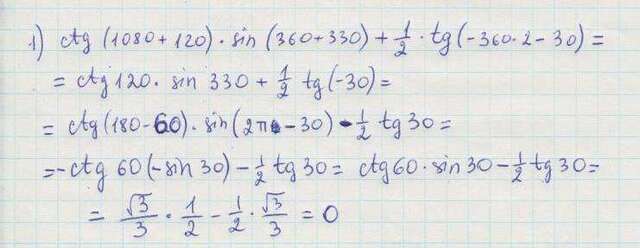 1) ctg (1080 + 120) · sin (360 + 330) + 1/2 · tg (-360 · 2 - 30) =
= ctg 120 · sin 330 + 1/2 tg (-30) =
= ctg (180 - 60) · sin (2π - 30) - 1/2 tg 30 =
= - ctg 60 (- sin 30) - 1/2 tg 30 = ctg 60 · sin 30 - 1/2 tg 30 =
= √3/3 · 1/2 - 1/2 · √3/3 = 0